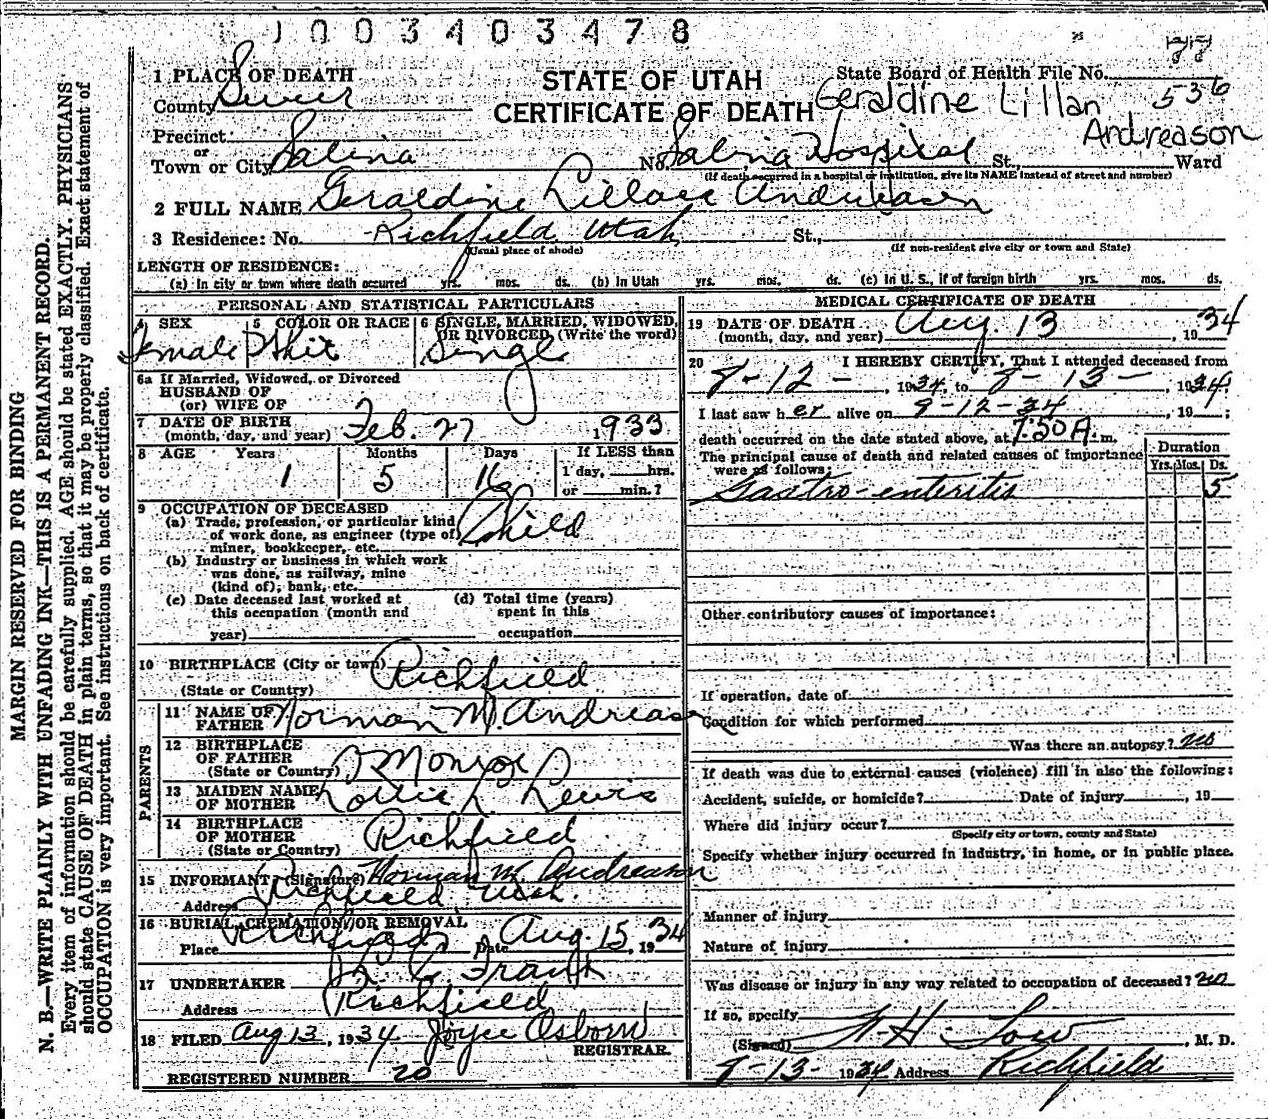 1003403478
77
1 PLACE OF DEATH
STATE OF UTAH
State Board of Health File No.
County Sevier
CERTIFICATE OF DEATH
Geraldine Lillan 536
Andreason
Precinct
or
Town or City Salina No. Salina Hospital St., Ward
(If death occurred in a hospital or institution, give its NAME instead of street and number)
2 FULL NAME Geraldine Andreasen
3 Residence: No. Richfield Utah St.,
(Usual place of abode) (If non-resident give city or town and State)
LENGTH OF RESIDENCE:
(a) In city or town where death occurred yrs. mos. ds. (b) In Utah yrs. mos. ds. (c) In U. S., if of foreign birth yrs. mos. ds.
PERSONAL AND STATISTICAL PARTICULARS
4 SEX 5 COLOR OR RACE 6 SINGLE, MARRIED, WIDOWED, OR DIVORCED, (Write the word)
Female White Single
6a If Married, Widowed, or Divorced
HUSBAND OF
(or) WIFE OF
7 DATE OF BIRTH
(month, day, and year) Feb. 27 1933
8 AGE Years Months Days If LESS than
1 5 16 1 day, hrs.
or min.?
9 OCCUPATION OF DECEASED
(a) Trade, profession, or particular kind
of work done, as engineer (type of) Child
miner, bookkeeper, etc.
(b) Industry or business in which work
was done, as railway, mine
(kind of), bank, etc.
(c) Date deceased last worked at (d) Total time (years)
this occupation (month and spent in this
year) occupation
10 BIRTHPLACE (City or town) Richfield
(State or Country)
PARENTS
11 NAME OF
FATHER Norman M. Andreason
12 BIRTHPLACE
OF FATHER Monroe
(State or Country)
13 MAIDEN NAME
OF MOTHER Lottie L Lewis
14 BIRTHPLACE
OF MOTHER Richfield
(State or Country)
15 INFORMANT (Signature) Norman M. Andreason
Address Richfield Utah.
16 BURIAL, CREMATION, OR REMOVAL
Place Richfield Date Aug. 15, 1934
17 UNDERTAKER
Address Richfield
18 FILED Aug 13, 1934 Joyce Osborn
REGISTRAR.
REGISTERED NUMBER 20
MEDICAL CERTIFICATE OF DEATH
19 DATE OF DEATH Aug. 13
(month, day, and year) , 1934
20 I HEREBY CERTIFY, That I attended deceased from
8-12- , 1934, to 8-13- , 1934;
I last saw her alive on 8-12-34 , 19 ;
death occurred on the date stated above, at 7:50 A. m.
The principal cause of death and related causes of importance
were as follows:
Duration
Yrs. Mos. Ds.
Gastro-enteritis 5
Other contributory causes of importance:
If operation, date of
Condition for which performed
Was there an autopsy? no
If death was due to external causes (violence) fill in also the following:
Accident, suicide, or homicide? Date of injury , 19
Where did injury occur?
(Specify city or town, county and State)
Specify whether injury occurred in industry, in home, or in public place.
Manner of injury
Nature of injury
Was disease or injury in any way related to occupation of deceased? no
If so, specify
(Signed) , M. D.
8-13- 1934 Address Richfield
MARGIN RESERVED FOR BINDING
N. B.—WRITE PLAINLY WITH UNFADING INK—THIS IS A PERMANENT RECORD.
Every item of information should be carefully supplied. AGE should be stated EXACTLY. PHYSICIANS
should state CAUSE OF DEATH in plain terms, so that it may be properly classified. Exact statement of
OCCUPATION is very important. See instructions on back of certificate.